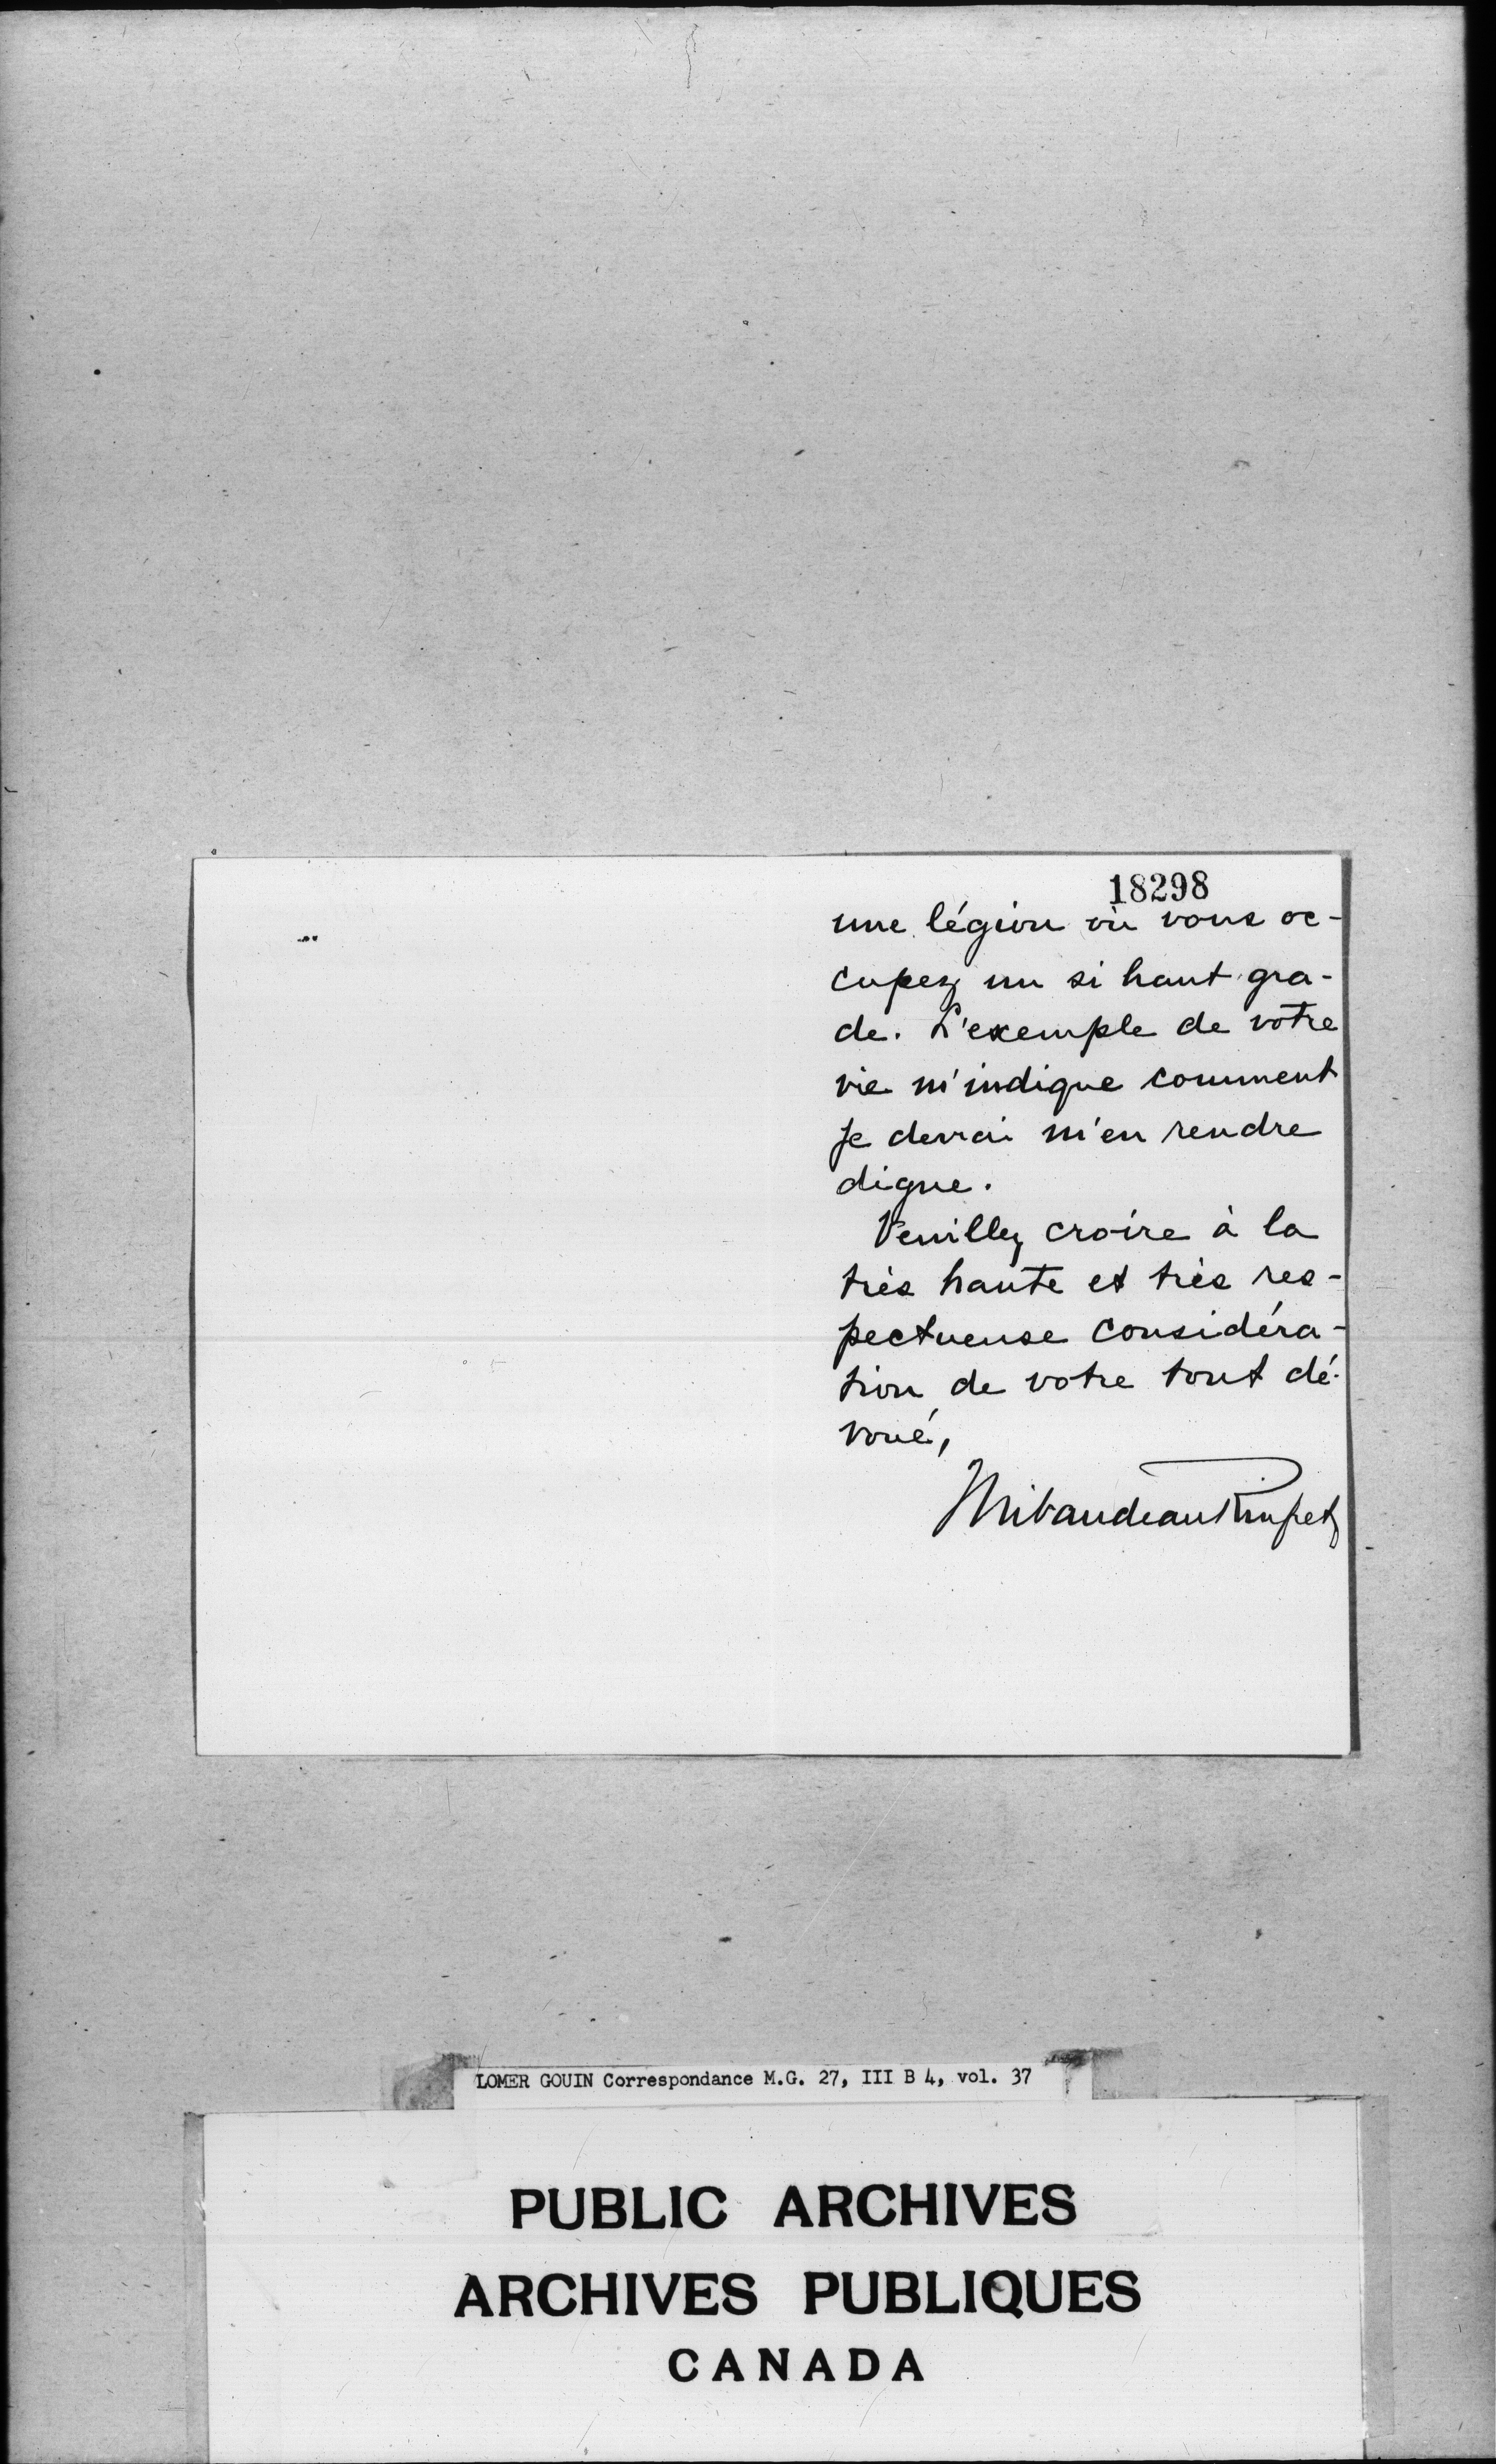 18298
une légion où vous oc-
cupez un si haut gra-
de. L'exemple de votre
vie m'indique comment
je devrai m'en rendre
digne.
Veuillez croire à la
très haute et très res-
pectueuse considéra-
tion de votre tout dé-
voué,
ThibaudeauRinfret
LOMER GOUIN Correspondance M.G. 27, III B 4, vol. 37
PUBLIC ARCHIVES
ARCHIVES PUBLIQUES
CANADA